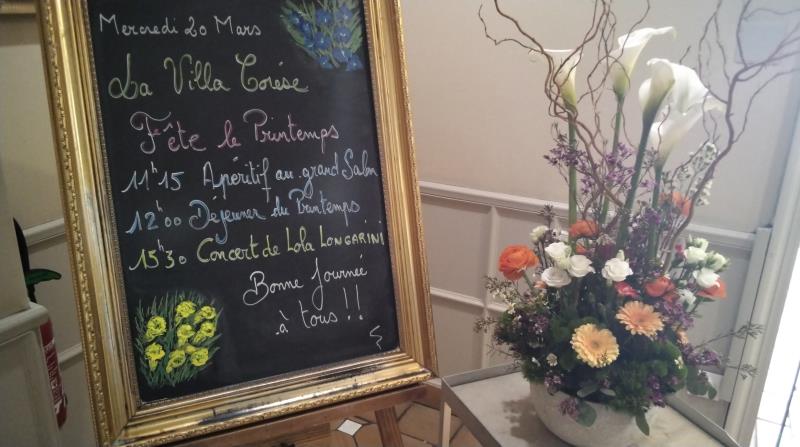 Mercredi 20 Mars
La Villa Corése
Fête le Printemps
11h15 Apéritif au grand Salon
12h00 Déjeuner du Printemps
15h30 Concert de Lola LONGARINI
Bonne Journée
à tous !!